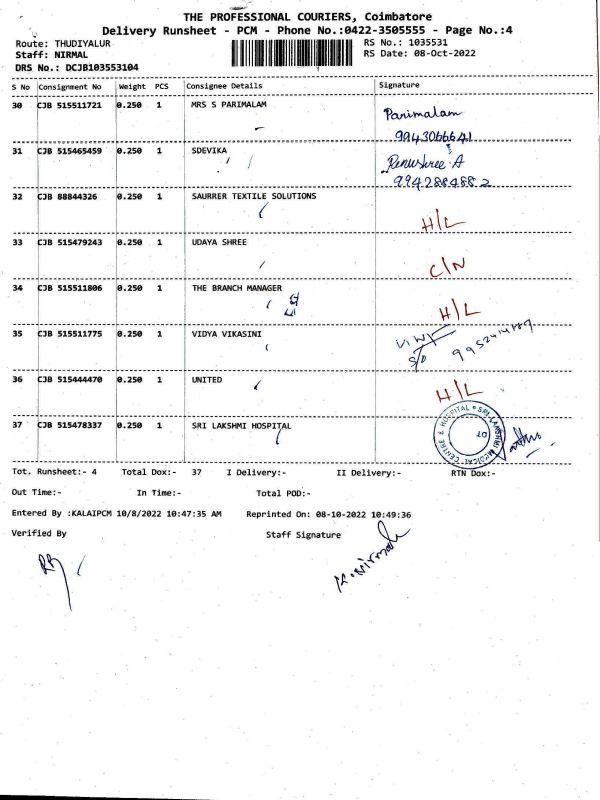 THE PROFESSIONAL COURIERS, Coimbatore
Delivery Runsheet - PCM - Phone No.:0422-3505555 - Page No.:4
Route: THUDIYALUR
RS No.: 1035531
Staff: NIRMAL
RS Date: 08-Oct-2022
DRS No.: DCJB103553104
S No Consignment No Weight PCS Consignee Details Signature
30 CJB 515511721 0.250 1 MRS S PARIMALAM Parimalam
9943066641
31 CJB 515465459 0.250 1 SDEVIKA Renushree A
9942884882
32 CJB 88844326 0.250 1 SAURRER TEXTILE SOLUTIONS H/L
33 CJB 515479243 0.250 1 UDAYA SHREE C/N
34 CJB 515511806 0.250 1 THE BRANCH MANAGER H/L
35 CJB 515511775 0.250 1 VIDYA VIKASINI S/O
36 CJB 515444470 0.250 1 UNITED H/L
37 CJB 515478337 0.250 1 SRI LAKSHMI HOSPITAL
SRI LAKSHMI MEDICAL CENTRE & HOSPITAL
Tot. Runsheet:- 4 Total Dox:- 37 I Delivery:- II Delivery:- RTN Dox:-
Out Time:- In Time:- Total POD:-
Entered By :KALAIPCM 10/8/2022 10:47:35 AM Reprinted On: 08-10-2022 10:49:36
Verified By Staff Signature
K. Nirmal